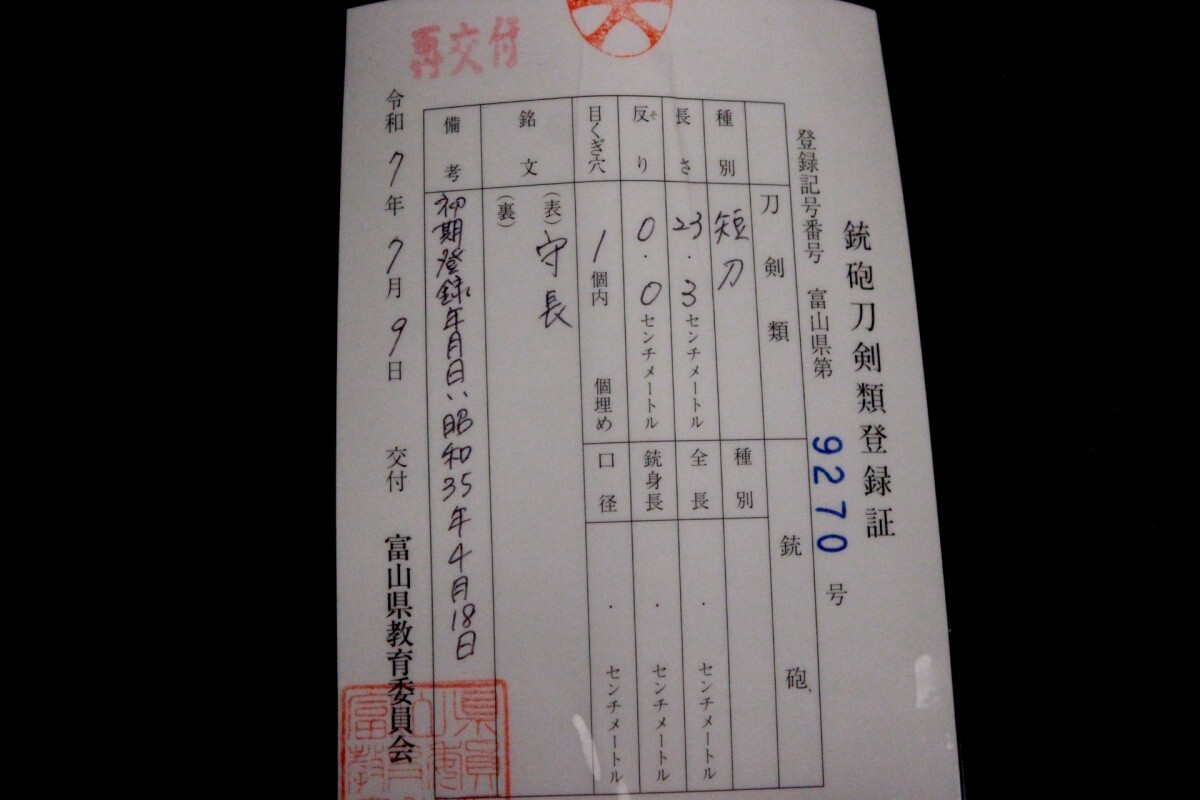 銃砲刀剣類登録証
登録記号番号 富山県第 9270 号
刀剣類
種別 短刀
長さ 23.3センチメートル
反り 0.0センチメートル
そ
目くぎ穴 1個内 個埋め
銘文 (表)守長
(裏)
銃砲
種別
全長 .センチメートル
銃身長 .センチメートル
口径 .センチメートル
備考 初期登録年月日、昭和35年4月18日
令和7年7月9日 交付 富山県教育委員会
再交付